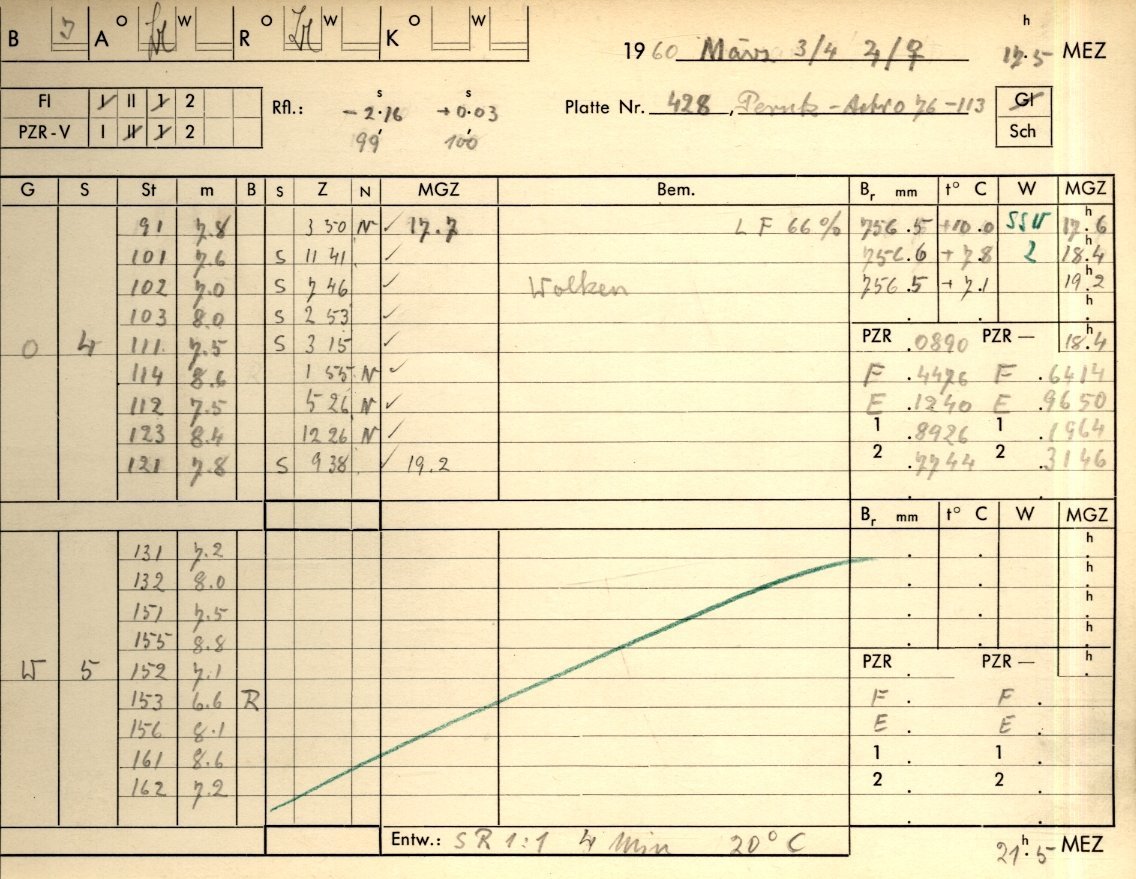 B A O W R O W K O W
1960 März 3/4 ♃/♀ 17h.5 MEZ
FI I II 1 2
PZR-V I II 1 2
Rfl.: s -2.16 s +0.03
99 100
Platte Nr. 428, Perutz-Astro 76-113
Gl
Sch
G S St m B S Z N MGZ Bem. Br mm t° C W MGZ
91 7.8 3 50 N ✓ 17.7 LF 66% 756.5 +10.0 SSW 17h.6
101 7.6 S 11 41 ✓ 756.6 +7.8 2 18h.4
102 7.0 S 7 46 ✓ Wolken 756.5 +7.1 19h.2
103 8.0 S 2 53 ✓ . . h.
O 4 111 7.5 S 3 15 ✓ PZR .0890 PZR — 18h.4
114 8.6 1 55 N ✓ F .4476 F .6414
112 7.5 5 26 N ✓ E .1240 E .9650
123 8.4 12 26 N ✓ 1 .8926 1 .1964
121 7.8 S 9 38 ✓ 19.2 2 .7744 2 .3146
Br mm t° C W MGZ
131 7.2 . . h.
132 8.0 . . h.
151 7.5 . . h.
155 8.8 . . h.
W 5 152 7.1 PZR . PZR — h.
153 6.6 R F . F .
156 8.1 E . E .
161 8.6 1 . 1 .
162 7.2 2 . 2 .
Entw.: SR 1:1 4 Min 20° C
21h.5 MEZ